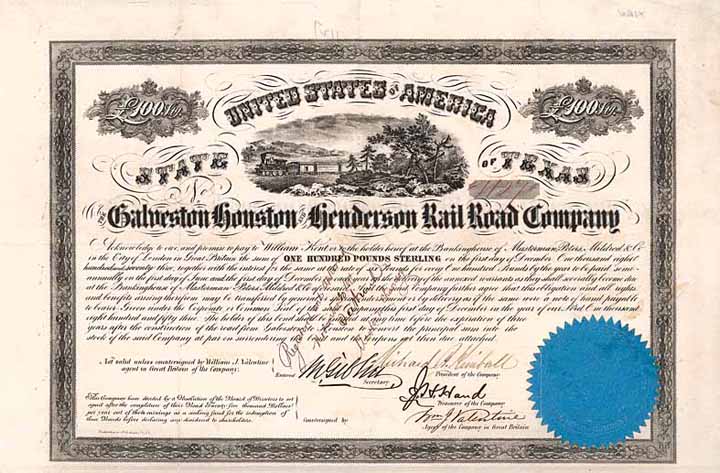 £100 Str.
£100 Str.
UNITED STATES OF AMERICA
STATE OF TEXAS
The Galveston Houston and Henderson Rail Road Company
Acknowledge to owe, and promise to pay to William Kent or to the holder hereof at the Bankinghouse of Masterman, Peters, Mildred & Co
in the City of London in Great Britain the sum of ONE HUNDRED POUNDS STERLING on the first day of December One thousand eight
hundred and seventy three, together with the interest for the same at rate of Pounds by the year to be paid semi-
annually on the first day of June and the first day of December in each year
at the Bankinghouse of Masterman Peters Mildred & Co Company further agree that this obligation and all rights
and benefits arising therefrom may be transferred by general or or by delivery as if the same were a note of hand payable
to bearer. Given under the Corporate or Common Seal of the in the year of our Lord One thousand
eight hundred and fifty three the holder of this bond shall be at any time before the expiration of three
years after the construction of the road from Galveston to Houston to convert the principal sum into the
stock of the said Company at par on surrendering this Bond and the Coupons not then due in the year
Not valid unless countersigned by William J. Valentine
agent in Great Britain of the Company.
Entered
Secretary
President of the Company
J. H. Hand
Treasurer of the Company
This Company have decided by a Resolution of the Board of Directors to set
apart after the completion of their Road Twenty five thousand Dollars
per year out of their earnings as a sinking fund for the redemption of
these Bonds before declaring any dividend to shareholders.
Countersigned by
Wm J. Valentine
Agent of the Company in Great Britain